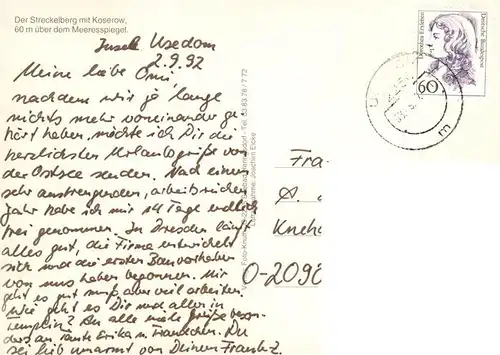 Der Streckelberg mit Koserow,
60 m über dem Meeresspiegel.
Insel Usedom
2.9.92
Meine liebe Omi,
nachdem wir ja lange
nichts mehr voneinander ge-
hört haben, möchte ich Dir die
herzlichsten Urlaubsgrüße von
der Ostsee senden. Nach einem
sehr anstrengenden, arbeitsreichen
Jahr habe ich mir 14 Tage endlich
frei genommen. In Dresden läuft
alles gut, die Firma entwickelt
sich und die ersten Bauvorhaben
von uns haben begonnen. Mir
geht es gut, muß aber viel arbeiten.
Wie geht es Dir und allen in
Templin? An alle viele Grüße beson-
ders an Tante Erika u. Frauchen. Du
sei lieb umarmt von Deinem Frank
Tel. 53 83 78 / 7 72
Joachim Ecke
Dorothea Erxleben
Deutsche Bundespost
60
Fra
A.
Kneh
O-2090